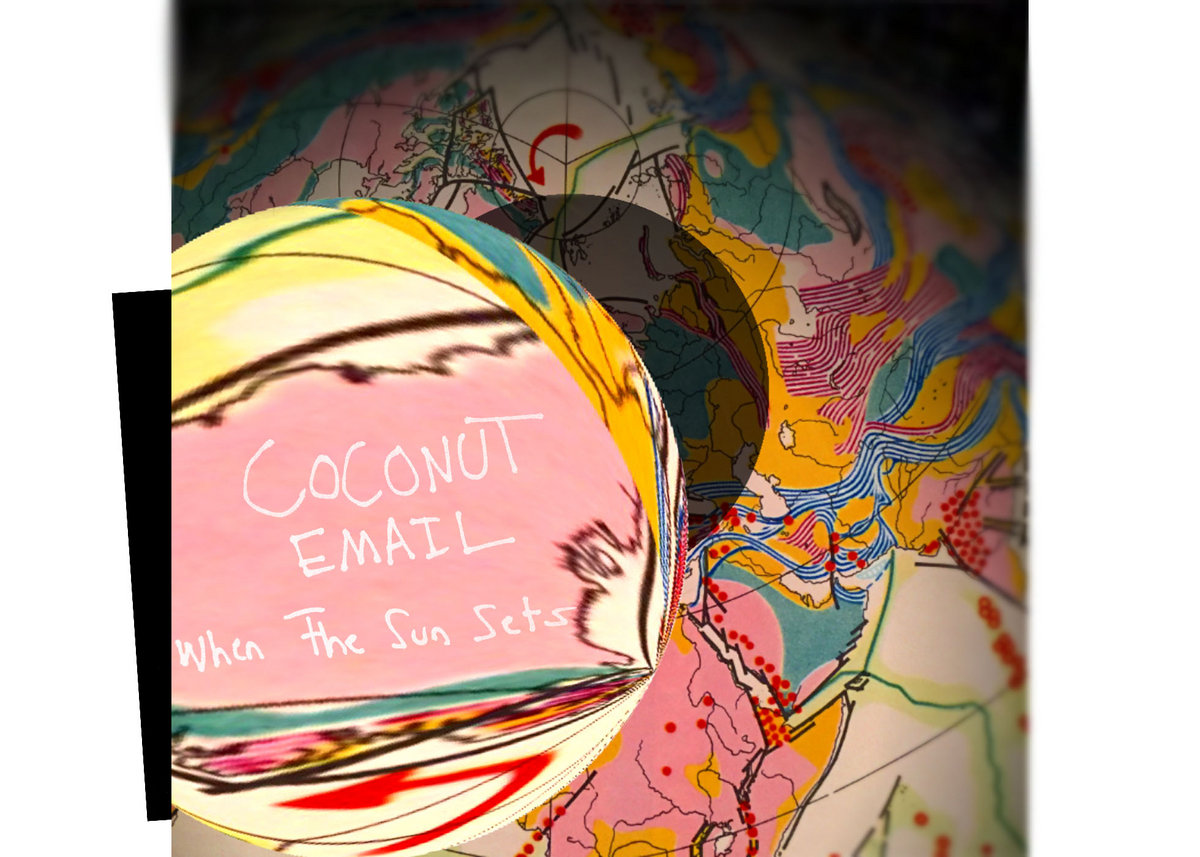 COCONUT
EMAIL
When The Sun Sets